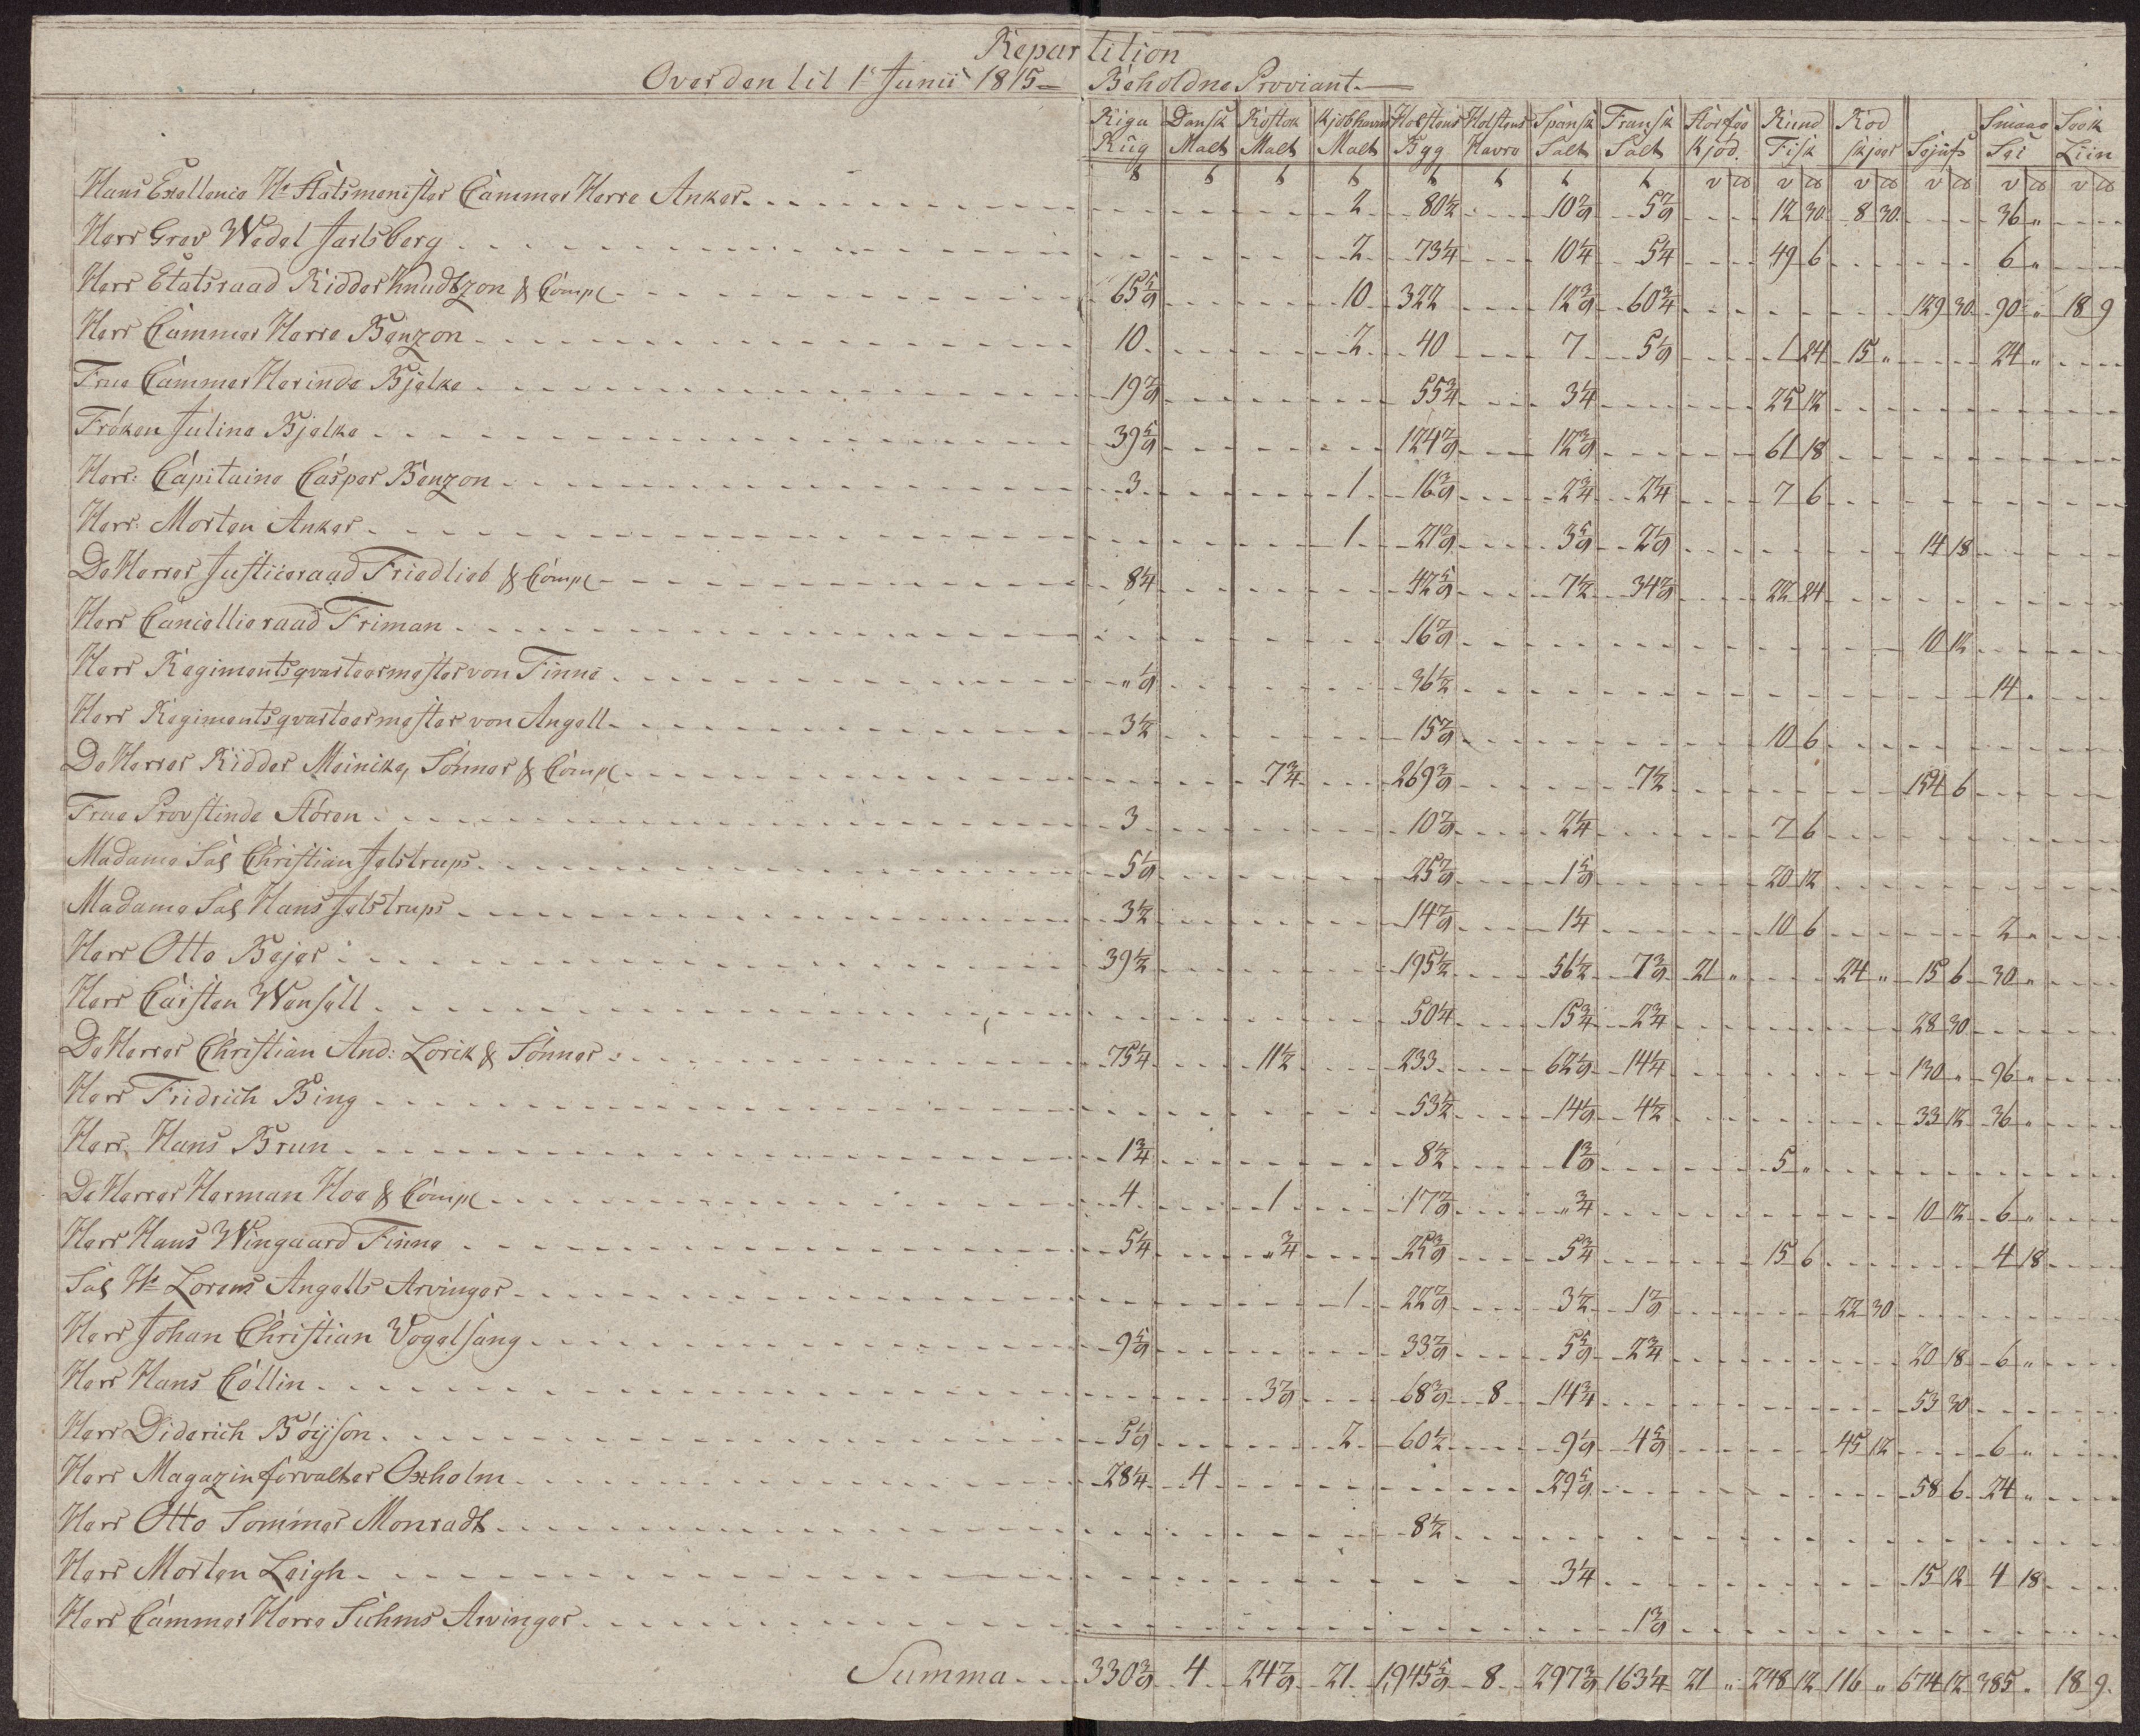 Repartition
Over den til 1ᵉ Junii 1815 = Beholdne Proviant.
Riga Rug | Dansk Malt | Rostok Malt | Kjøbhavns Malt | Holstens Byg | Holstens Havre | Spansk Salt | Fransk Salt | Storfee Kjød | Rund Fisk | Rod skjær | Sejüfs | Smaae Sei | Look Liin
Hans Exellence Hr Statsmenister Cammer Herre Anker 2 80½ 5 12 30 8 30 36 "
Herr Grev Wedel Jarlsberg 2 73¼ 10¼ 5¼ 49 6 6 "
Herr Etatsraad Ridder Knudtzon & Comp 10 322 60¾ 129 30 90 " 18 9
Herr Cammer Herre Benzon 10 2 40 7 1 24 15 " 24 "
Frue Cammer Herinde Bjelke 55¾ 3¼ 25 12
Frøken Juline Bjelke 61 18
Herr: Capitaine Casper Benzon 3 1 2¾ 2¾ 7 6
Herr: Morten Anker 1 14 18
De Herrer Justiceraad Friedlieb & Comp 8¼ 7½ 22 24
Herr Cancellieraad Friman 10 12
Herr Regimentsqvarteermester von Finne 36½ 14 "
Herr Regimentsqvarteermester von Angell 3½ 10 6
De Herrer Ridder Meincke, Sønner & Comp 7¾ 7½ 154 6
Frue Provstinde Støren 3 2¼ 7 6
Madame Sal Christian Jelstrups 20 12
Madame Sal Hans Jelstrups 3½ 1¼ 10 6 2 "
Herr Otto Bejer 39½ 195½ 56½ 21 " 24 " 15 6 30 "
Herr Carsten Wensell 50¼ 15¾ 2¾ 28 30
De Herrer Christian And: Lorck & Sønner 75¼ 11½ 233 14¼ 130 " 96 "
Herr Fridrich Bing 53½ 4½ 33 12 36 "
Herr. Hans Brun 1¾ 8½ 5 "
De Herrer Herman Hoe & Comp 4 1 " ¾ 10 12 6 "
Herr Hans Wingaard Finne 5¼ " ¾ 5¾ 15 6 4 18
Sal Hr Lorens Angells Arvinger 1 3½ 22 30
Herr Johan Christian Vogelsang 2¾ 20 18 6 "
Herr Hans Collin 8 14¾ 53 30
Herr Diderich Bøÿsen 2 60½ 45 12 6 "
Herr Magazinforvalter Oxholm 28¼ 4 58 6 24 "
Herr Otto Sommer Monradt 8½
Herr Morten Leigh 3¼ 15 12 4 18
Herr Cammer Herre Suhms Arvinger
Summa 4 21 8 163¼ 21 " 248 12 116 " 674 12 385 " 18 9